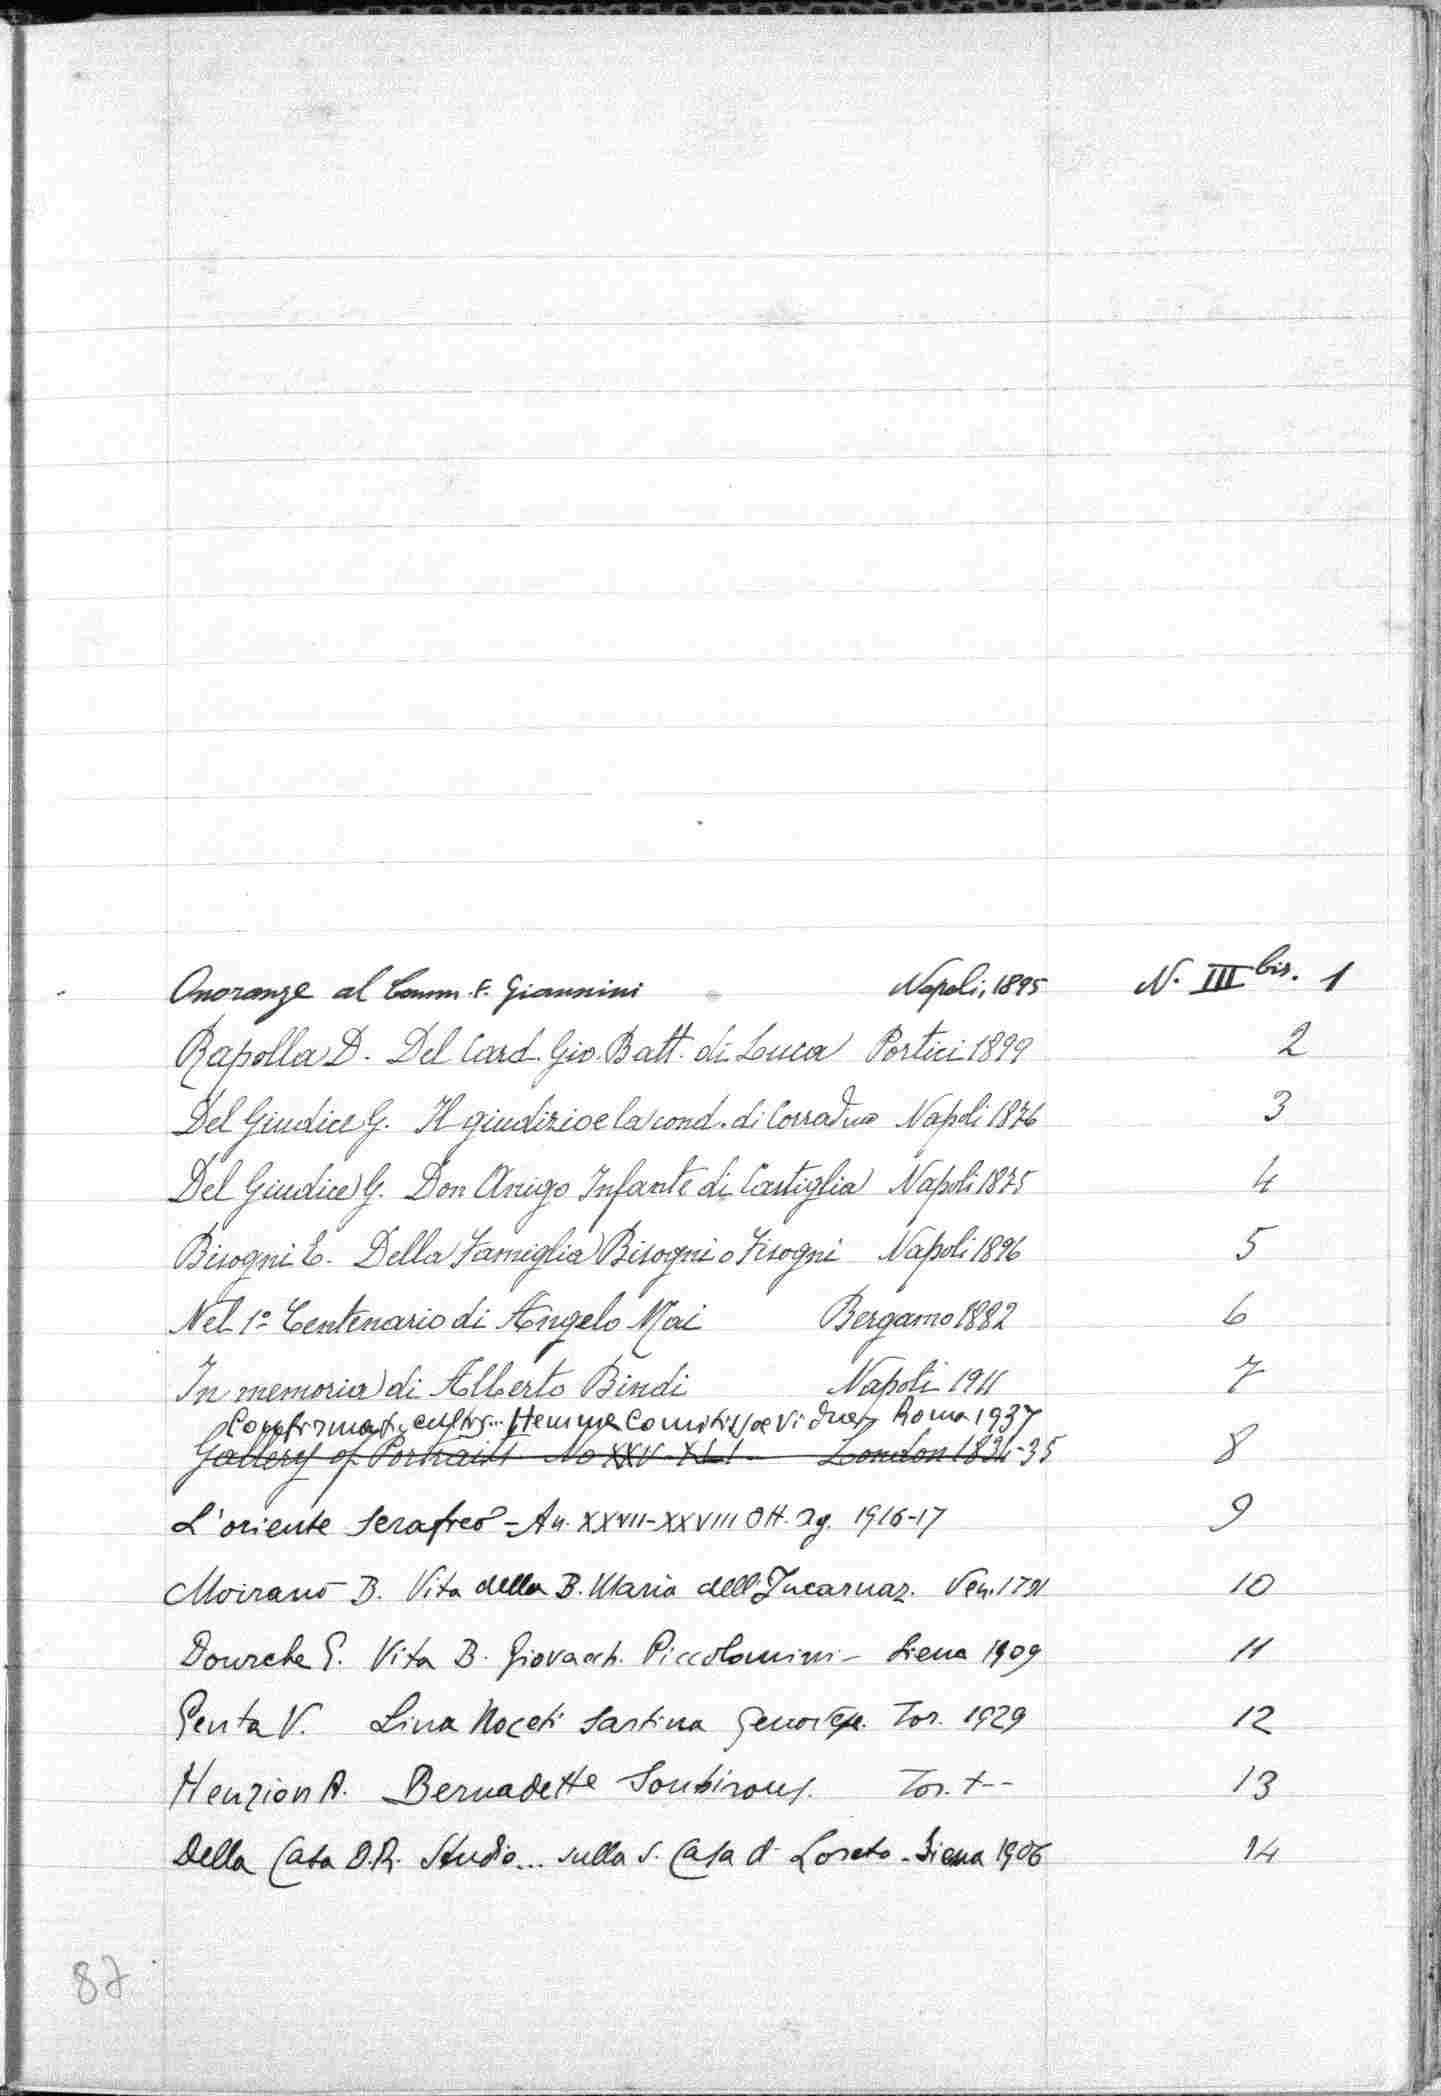 Onoranze al Comm. F. Giannini Napoli, 1895 N. III bis. 1
Rapolla D. Del Card. Gio. Batt. di Luca Portici 1899 2
Del Giudice G. Il giudizio e la cond. di Corradino Napoli 1876 3
Del Giudice G. Don Arrigo Infante di Castiglia Napoli 1875 4
Bisogni E. Della Famiglia Bisogni o Fisogni Napoli 1896 5
Nel 1º Centenario di Angelo Mai Bergamo 1882 6
In memoria di Alberto Bindi Napoli 1911 7
Confirmat. cultus... Hemmae Comitissae Viduae Roma 1937
Gallery of Portraits No XXV-XLI London 1834-35 8
L'oriente Serafico - An. XXVII-XXVIII Ott. Ag. 1916-17 9
Moirano B. Vita della B. Maria dell'Incarnaz. Ven. 1791 10
Dourche G. Vita B. Giovacch. Piccolomini - Siena 1909 11
Penta V. Lina Noceti Sartina Tor. 1929 12
Henzion A. Bernadette Soubirous. Tor. +-- 13
Della Casa D.R. Studio... sulla S. Casa d. Loreto - Siena 1906 14
87